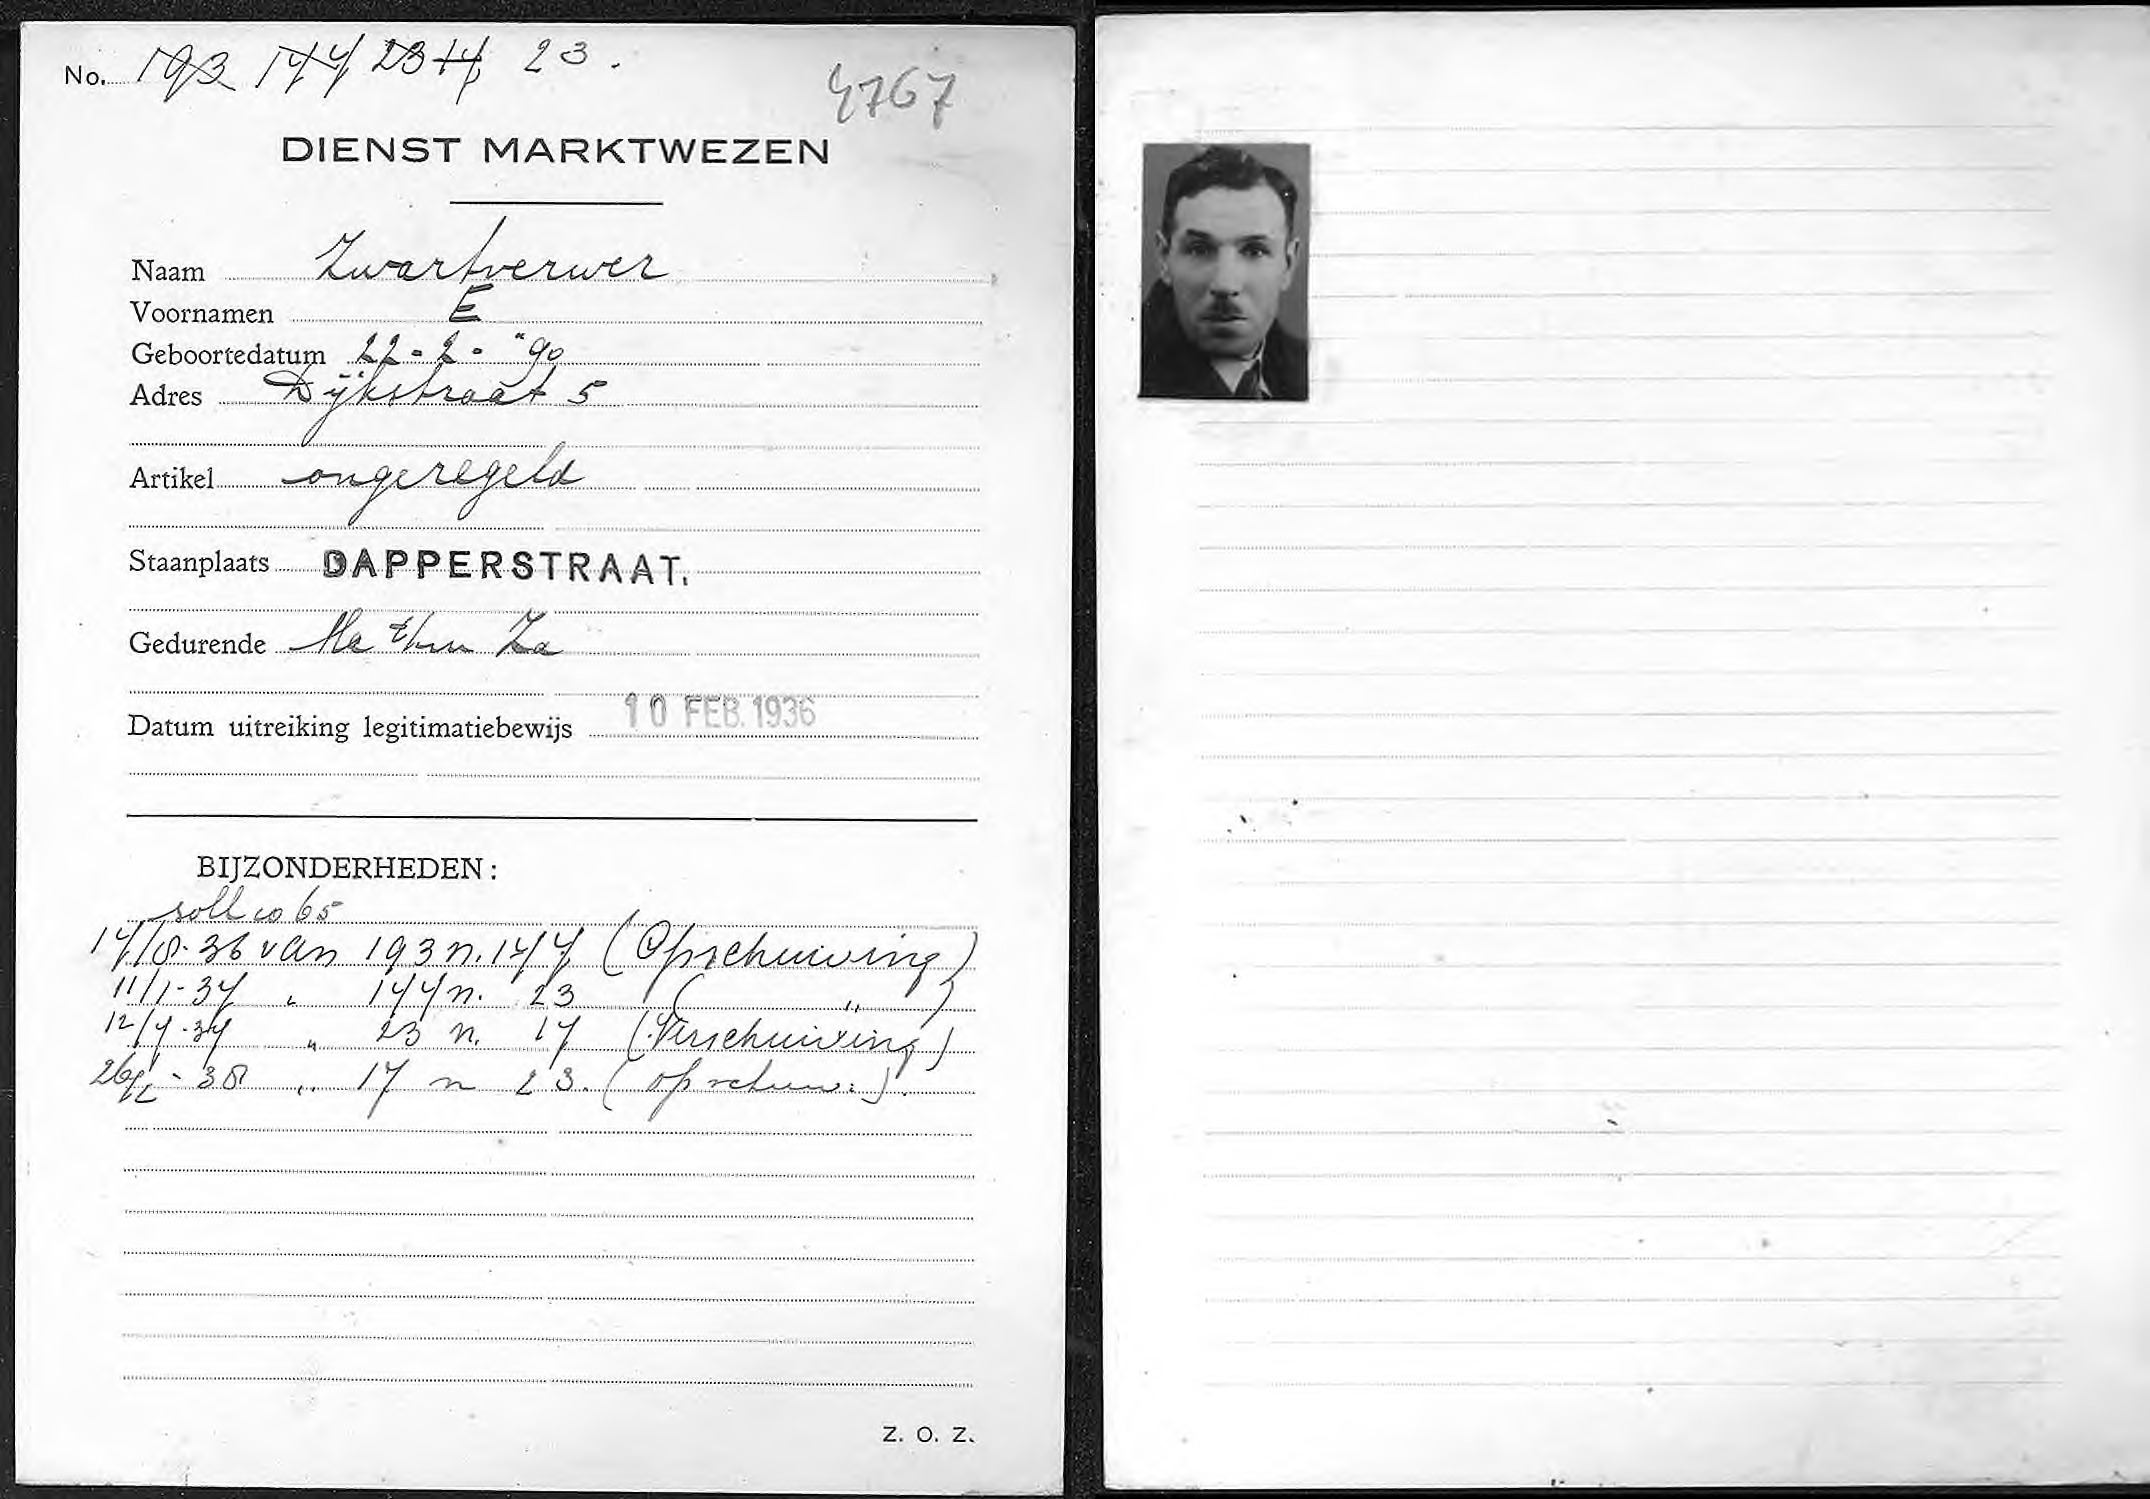 No. 193 144 23 17 23.
4767
DIENST MARKTWEZEN
Naam Zwartverwer
Voornamen E
Geboortedatum 22-2-"90
Adres Dijkstraat 5
Artikel ongeregeld
Staanplaats DAPPERSTRAAT.
Gedurende Ma t/m Za
Datum uitreiking legitimatiebewijs 10 FEB. 1936
BIJZONDERHEDEN:
soll 65
van 193 n. 144 (Opschuiving)
11/1-37 " 144 n. 23 ( " )
12/4-37 " 23 n. 17 (Verschuiving)
-38 " 17 n 23. (opschuiv:).
Z. O. Z.